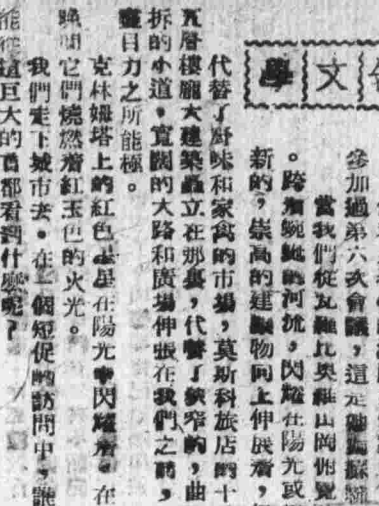 文學
參加過第六次會議,這是
當我們從瓦羅比奧維山岡俯覽
。跨着蜿蜒的河流,閃耀在陽光或
新的,崇高的建築物向上伸展着,
代替了野味和家禽的市場,莫斯科旅店的十
五層樓龐大建築矗立在那裏,代替了狹窄的,曲
折的小道,寬闊的大路和廣場伸張在我們之前,
盡目力之所能極。
克林姆塔上的紅色
星在陽光中閃耀着。在
晚間它們燒燃着紅玉色的火光。
我們走下城市去。在一個短促的訪問中,誰
能在這巨大的首都看到什麼呢?